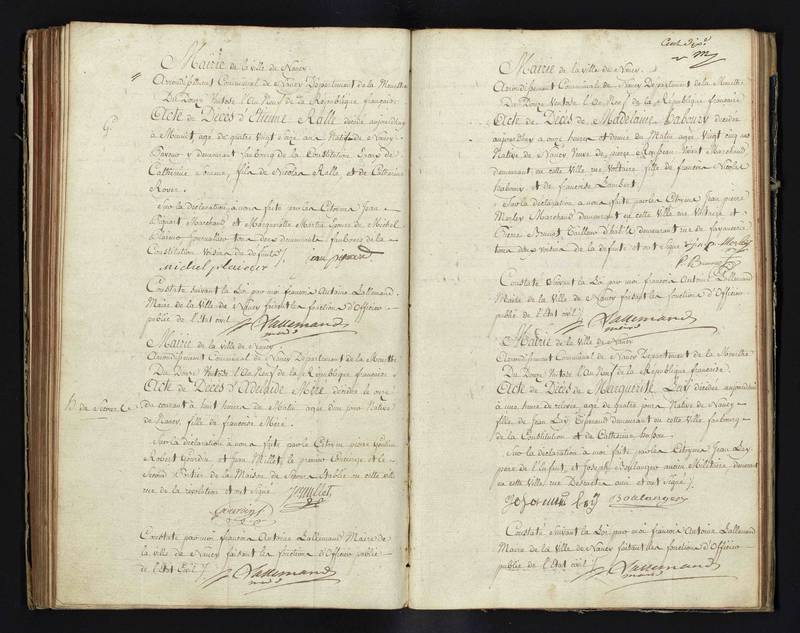 Mairie de la ville de Nancy.
Arrondissement Communal de Nancy Département de la Meurthe
Du Douze Ventose l'An Neuf de la République française.
Acte de Décès d'Etienne Ralle décédé aujourdhuy
à Minuit, agé de quatre vingt Natif de Nancy
demeurant faubourg de la Constitution Epoux de
Catherine fils de Nicolas Ralle et de Catherine
Royer.
Sur la déclaration à nous faite par les Citoyens Jean
Marchand et Marguerite Martin Epouse de Michel
journalier tous deux demeurants faubourg de la
Constitution voisins du défunt
michel
Constaté suivant la Loi par moi françois Antoine Lallemand
Maire de la Ville de Nancy faisant les fonctions d'Officier
public de l'état civil
Lallemand
maire
Mairie de la ville de Nancy
Arrondissement Communal de Nancy Département de la Meurthe
Du Douze Ventose l'An Neuf de la République française
Acte de Décès d'Adelaïde Mère décédée le onze
B. de Secours
du courant à huit heures du Matin agée d'un jour Native
de Nancy, fille de françoise Mère.
Sur la déclaration à nous faite par les Citoyens pierre
Robert Gourdin et Jean Millet, le premier et le
Second de la Maison de Secours établie en cette ville
rue de la révolution et ont signé
Jmillet
Gourdin
Constaté par moi françois Antoine Lallemand Maire de
la ville de Nancy faisant les fonctions d'Officier public
de l'état Civil
Lallemand
maire
Cent dix
Mairie de la ville de Nancy.
Arrondissement Communal de Nancy Département de la Meurthe
Du Douze Ventose l'An Neuf de la République française
Acte de Décès de Madelaine Naboury décédée
aujourdhuy à onze heures et demie du Matin agée Vingt cinq ans
Native de Nancy de pierre Marchand
demeurant en cette Ville rue Voltaire fille de françois Nicolas
Naboury et de françoise Lambert
Sur la déclaration à nous faite par les Citoyens Jean pierre
Morley Marchand demeurant en cette Ville rue Voltaire et
Pierre Tailleur d'habits demeurant rue de
tous deux voisins de la défunte et ont signé
Constaté suivant la Loi par moi françois Antoine Lallemand
Maire de la Ville de Nancy faisant les fonctions d'Officier
public de l'état civil
Lallemand
maire
Mairie de la ville de Nancy
Arrondissement Communal de Nancy Département de la Meurthe
Du Douze Ventose l'An Neuf de la République française.
Acte de Décès de Marguerite Ley décédée aujourdhui
à une heure de relevée, agée de quatre jours Native de Nancy
fille de Jean Ley demeurant en cette Ville faubourg
de la Constitution et de Catherine
Sur la déclaration à nous faite par les Citoyens Jean Ley
père de l'enfant, et Joseph Boulanger ancien Militaire demeurant
en cette Ville rue Descartes ami et ont signé
Boulanger
Constaté suivant la Loi par moi françois Antoine Lallemand
Maire de la Ville de Nancy faisant les fonctions d'Officier
public de l'état civil
Lallemand
maire